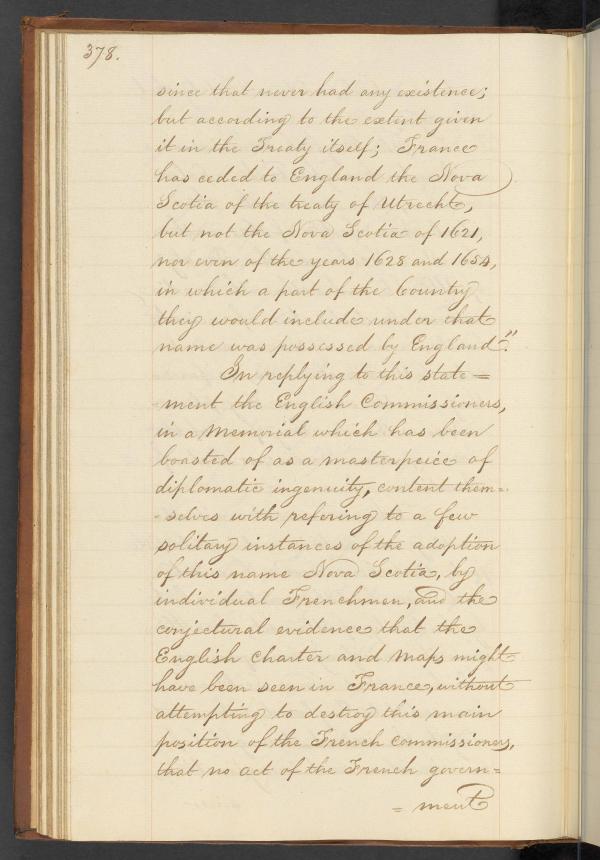 378.
since that never had any existence;
but according to the extent given
it in the Treaty itself; France
has ceded to England the Nova
Scotia of the treaty of Utrecht,
but not the Nova Scotia of 1621,
nor even of the years 1628 and 1654,
in which a part of the Country
they would include under that
name was possessed by England."
In replying to this state =
ment the English Commissioners,
in a Memorial which has been
boasted of as a masterpeice of
diplomatic ingenuity, content them=
- selves with refering to a few
solitary instances of the adoption
of this name Nova Scotia, by
individual Frenchmen, and the
conjectural evidence that the
English charter and maps might
have been seen in France, without
attempting to destroy this main
position of the French commissioners,
that no act of the French govern=
= ment